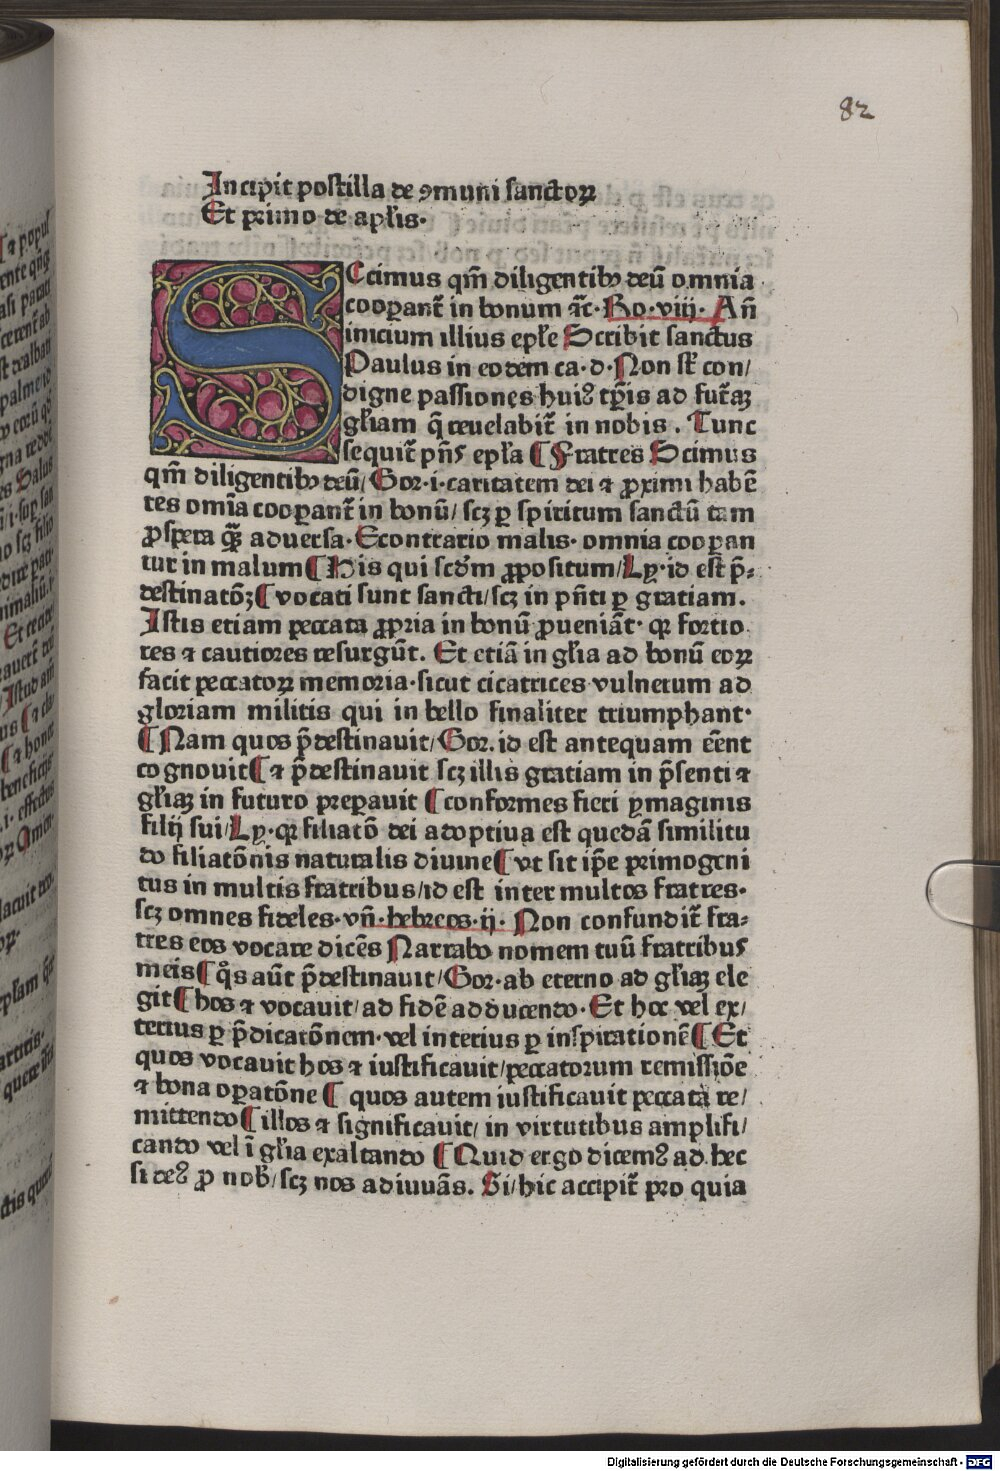 82
Incipit postilla de ꝯmuni sanctoꝝ
Et primo de apl̄is·
SCcimus qm̄ diligentibꝰ deū omnia
cooperant᷑ in bonum ⁊c̄· Ro·viij· Añ
inicium illius epl̄e Scribit sanctus
Paulus in eodem ca·d·Non sūt con/
digne passiones huiꝰ tꝑis ad futāꝫ
gl̄iam q̄ reuelabit᷑ in nobis . Tunc
sequit᷑ pn̄s epl̄a ¶ Fratres Scimus
qm̄ diligentibꝰ deū/ Gor·i·caritatem dei ⁊ ꝓximi habē
tes om̄ia cooꝑant᷑ in bonū/ scꝫ ꝑ spiritum sanctū tam
ꝓspera qꝫ̄ aduersa·Econtrario malis· omnia cooꝑan
tur in malum ¶ His qui scd̄m ꝓpositum/Ly·id est p̄⸗
destinatōꝫ ¶ vocati sunt sancti/scꝫ in pn̄ti ꝑ gratiam.
Istis etiam peccata ꝓpria in bonū ꝓueniāt· qꝛ fortio
res ⁊ cautiores resurgūt. Et etiā in gl̄ia ad bonū eoꝝ
facit peccatoꝝ memoria·sicut cicatrices vulnerum ad
gloriam militis qui in bello finaliter triumphant·
¶ Nam quos p̄destinauit/ Gor. id est antequam eēnt
cognouit ¶ ⁊ p̄destinauit scꝫ illis gratiam in p̄senti ⁊
gl̄iaꝫ in futuro preparauit ¶ conformes fieri ymaginis
filij sui/Ly·qꝛ filiatō dei adoptiua est quedā similitu
do filiatōnis naturalis diuine ¶ vt sit ip̄e primogeni
tus in multis fratribus/id est inter multos fratres·
scꝫ omnes fideles·vn̄·hebreos·ij· Non confundit᷑ fra⸗
tres eos vocare dicēs Narrabo nomem tuū fratribus
meis ¶ q̊s aūt p̄destinauit/Gor·ab eterno ad gl̄iaꝫ ele
git ¶ hos ⁊ vocauit/ad fidē adducendo·Et hoc vel ex/
terius ꝑ p̄dicatōnem·vel interius ꝑ inspirationē ¶ Et
quos vocauit hos ⁊ iustificauit/peccatorum remissiōe
⁊ bona oꝑatōne ¶ quos autem iustificauit peccata re/
mittendo ¶ illos ⁊ significauit/ in virtutibus amplifi/
cando vel ī gl̄ia exaltando ¶ Quid ergo dicemꝰ ad hec
si deꝰ ꝓ nob̄/scꝫ nos adiuuās. Si/hic accipit᷑ pro quia
Digitalisierung gefördert durch die Deutsche Forschungsgemeinschaft - DFG